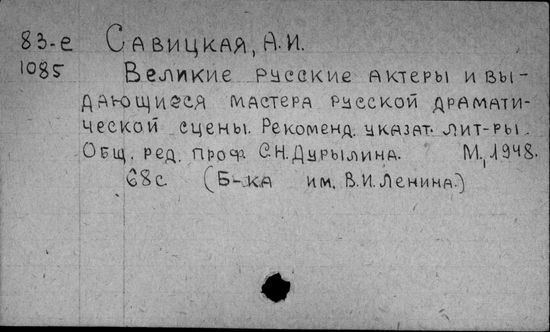 83-е САВИЦКАЯ, А.И.
1085 ВЕЛИКИЕ РУССКИЕ АКТЕРЫ И ВЫ-
ДАЮЩИЕСЯ МАСТЕРА РУССКОЙ ДРАМАТИ-
ЧЕСКОЙ СЦЕНЫ. РЕКОМЕНД. УКАЗАТ. ЛИТ-РЫ.
ОБЩ. РЕД. ПРОФ. С.Н. ДУРЫЛИНА. М., 1948.
68с. (Б-КА ИМ. В.И. ЛЕНИНА.)